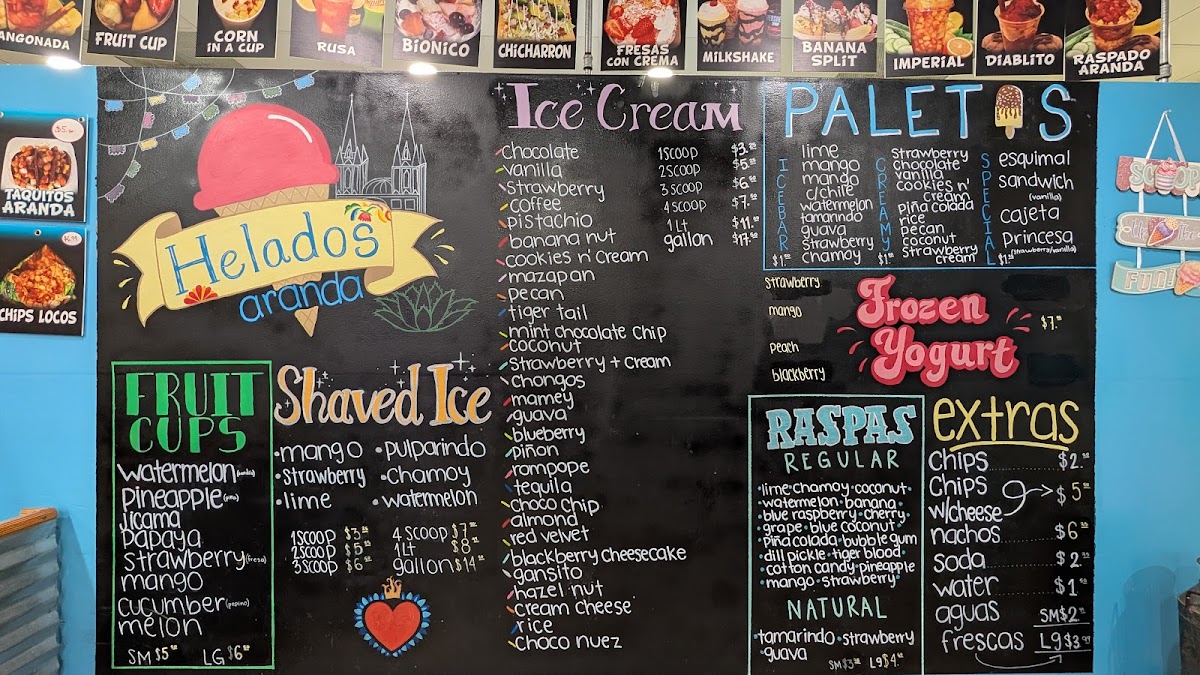 ANGONADA
FRUIT CUP
CORN
IN A CUP
RUSA
BIONICO
CHICHARRON
FRESAS
CON CREMA
MILKSHAKE
BANANA
SPLIT
IMPERIAL
DIABLITO
RASPADO
ARANDA
TAQUITOS
ARANDA
CHIPS LOCOS
Helados
aranda
FRUIT
CUPS
watermelon
pineapple (piña)
jicama
papaya
strawberry (fresa)
mango
cucumber (pepino)
melon
SM $5 LG $6
Shaved Ice
•mango •pulparindo
•strawberry •chamoy
•lime •watermelon
1SCOOP $3 4 SCOOP $7
2SCOOP $5 1 Lt $8
3SCOOP $6 gallon $14
Ice Cream
chocolate 1SCOOP $3.
vanilla 2SCOOP $5.
strawberry 3 SCOOP $6.
coffee 4 SCOOP $7.
pistachio 1 Lt $11.
banana nut gallon $17.
cookies n' cream
mazapan
pecan
tiger tail
mint chocolate chip
coconut
strawberry + cream
chongos
mamey
guava
blueberry
piñon
rompope
tequila
choco chip
almond
red velvet
blackberry cheesecake
gansito
hazel nut
cream cheese
rice
choco nuez
PALETAS
ICEBAR
lime
mango
mango
c/chile
watermelon
tamarindo
guava
strawberry
chamoy
$1.
CREAMY
strawberry
chocolate
vanilla
cookies n'
cream
piña colada
rice
pecan
coconut
strawberry
cream
$1.
SPECIAL
esquimal
sandwich
(vanilla)
cajeta
princesa
(strawberry/vanilla)
$1.
strawberry
mango
peach
blackberry
Frozen
Yogurt
$7.
RASPAS
REGULAR
•lime•chamoy•coconut•
•watermelon•banana•
•blue raspberry•cherry•
•grape•blue coconut•
•piña colada•bubble gum
•dill pickle•tiger blood•
•cotton candy•pineapple
•mango•strawberry•
NATURAL
•tamarindo•strawberry
•guava
SM $3 Lg $4.
extras
chips $2.
chips
w/cheese $5
nachos $6
soda $2
water $1
aguas SM $2
frescas Lg $3
SCOOP
FUN!